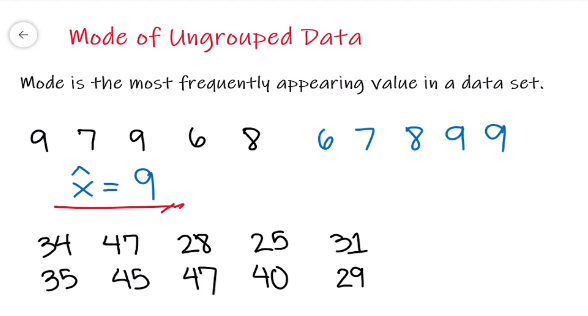 Mode of Ungrouped Data
Mode is the most frequently appearing value in a data set.
9 7 9 6 8 6 7 8 9 9
x̂ = 9
34 47 28 25 31
35 45 47 40 29